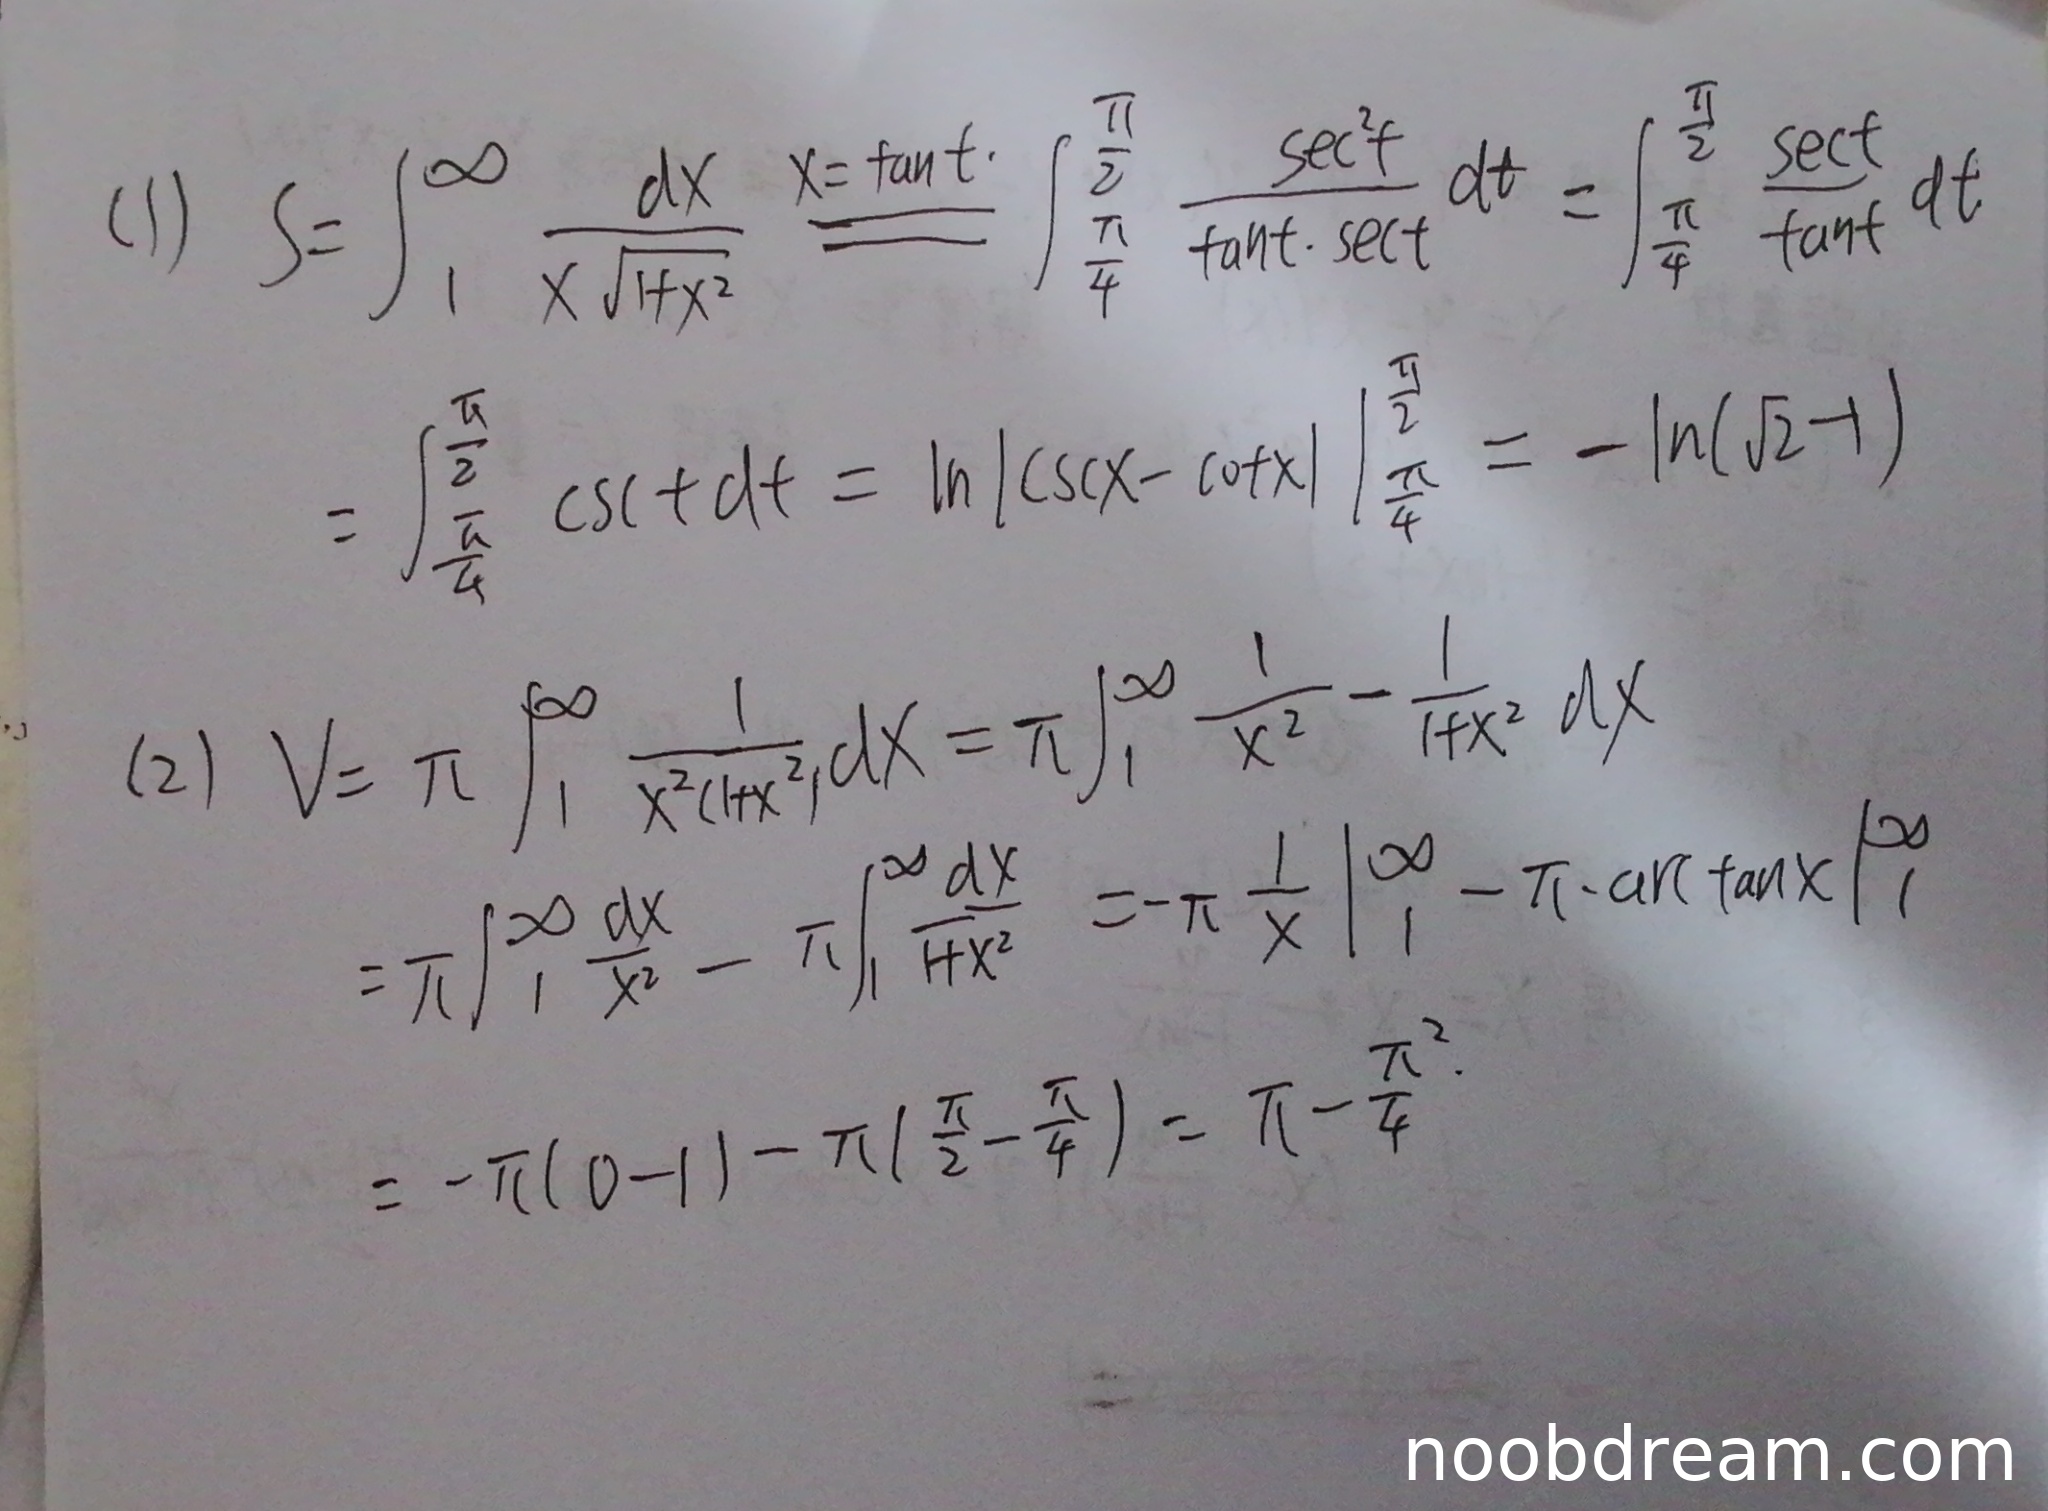 (1) S = ∫_1^∞ dx / (x√(1+x²)) x = tan t. ∫_{π/4}^{π/2} sec²t / (tan t · sec t) dt = ∫_{π/4}^{π/2} sec t / tan t dt
= ∫_{π/4}^{π/2} csc t dt = ln|csc x - cot x| |_{π/4}^{π/2} = -ln(√2-1)
(2) V = π ∫_1^∞ 1 / (x²(1+x²)) dx = π ∫_1^∞ 1/x² - 1/(1+x²) dx
= π ∫_1^∞ dx/x² - π ∫_1^∞ dx/(1+x²) = -π 1/x |_1^∞ - π · arctan x |_1^∞
= -π(0-1) - π(π/2 - π/4) = π - π²/4.
noobdream.com